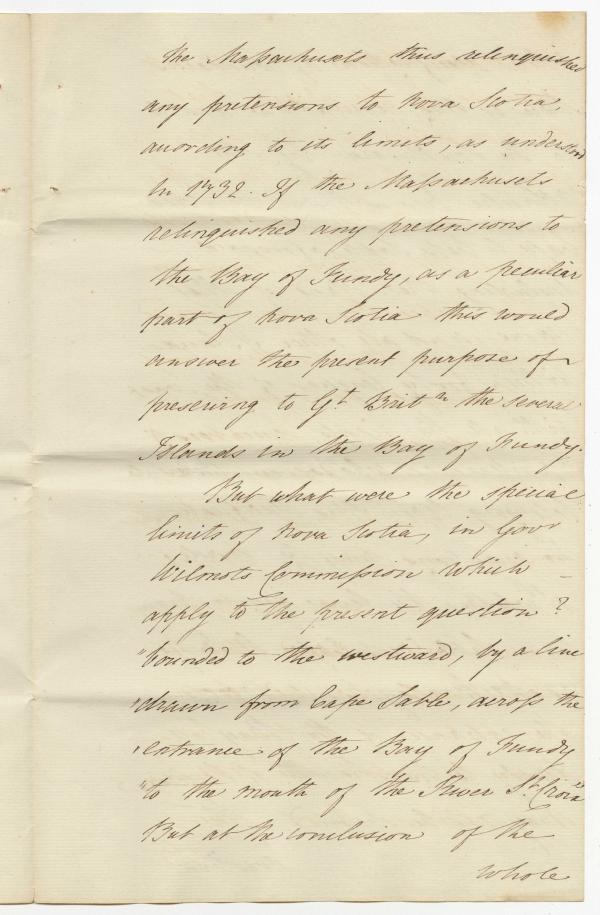 the Massachusets thus relinquished
any pretensions to Nova Scotia,
according to its limits, as understood
in 1732. If the Massachusets
relinquished any pretensions to
the Bay of Fundy, as a peculiar
part of Nova Scotia this would
answer the present purpose of
preserving to Gt Britn the several
Islands in the Bay of Fundy.
But what were the special
limits of Nova Scotia, in Govr
Wilmots Commission which
apply to the present question?
"bounded to the westward, by a line
"drawn from Cape Sable, across the
"entrance of the Bay of Fundy
"to the mouth of the River St. Croix"
But at the conclusion of the
whole